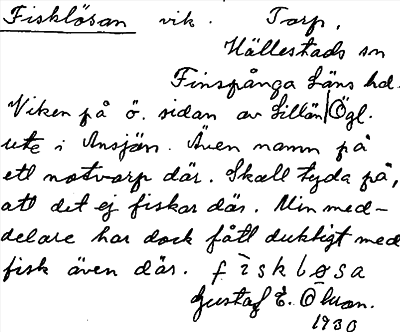 Fisklösan vik. Torp,
Hällestads sn
Finspånga Läns hd.
Viken på ö. sidan av Lillön Ögl.
ute i Ansjön. Även namn på
ett notvarp där. Skall tyda på,
att det ej fiskar där. Min med-
delare har dock fått duktigt med
fisk även där. fiskløsa
Gustaf E. Olsson.
1930